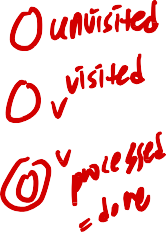 unvisited
v visited
v processed
= done